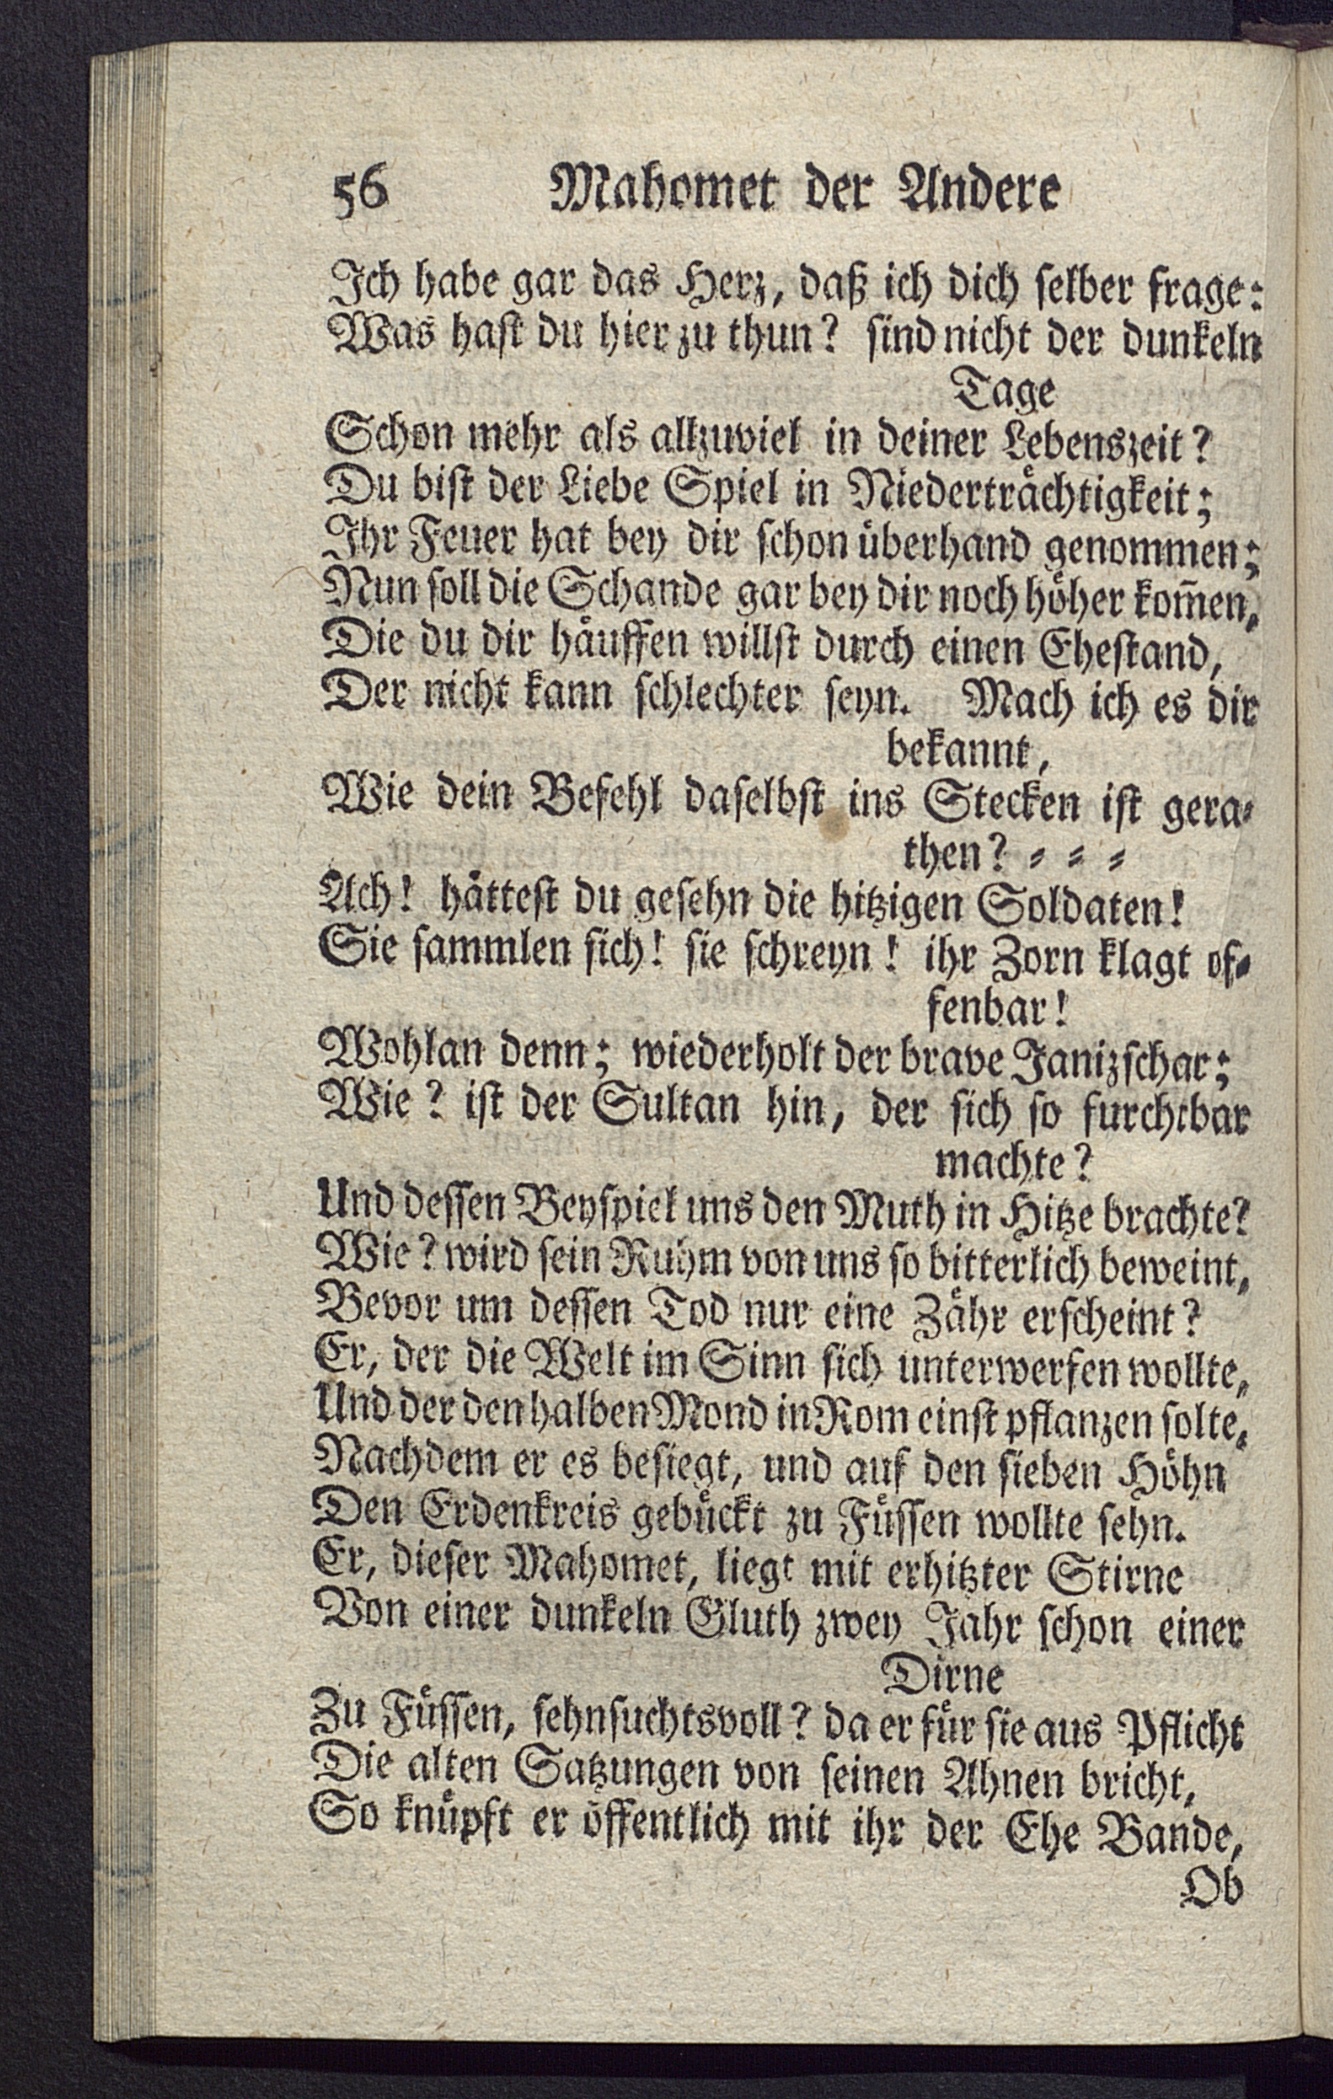 56 Mahomet der Andere
Ich habe gar das Herz, daß ich dich selber frage:
Was hast du hier zu thun? sind nicht der dunkeln
Tage
Schon mehr als allzuviel in deiner Lebenszeit?
Du bist der Liebe Spiel in Niederträchtigkeit;
Ihr Feuer hat bey dir schon überhand genommen;
Nun soll die Schande gar bey dir noch höher kom̃en,
Die du dir häuffen willst durch einen Ehestand,
Der nicht kann schlechter seyn. Mach ich es dir
bekannt,
Wie dein Befehl daselbst ins Stecken ist gera⸗
then? ⸗ ⸗ ⸗
Ach! hättest du gesehn die hitzigen Soldaten!
Sie sammlen sich! sie schreyn! ihr Zorn klagt of⸗
fenbar!
Wohlan denn; wiederholt der brave Janizschar;
Wie? ist der Sultan hin, der sich so furchtbar
machte?
Und dessen Beyspiel uns den Muth in Hitze brachte?
Wie? wird sein Ruhm von uns so bitterlich beweint,
Bevor um dessen Tod nur eine Zähr erscheint?
Er, der die Welt im Sinn sich unterwerfen wollte,
Und der den halben Mond in Rom einst pflanzen solte,
Nachdem er es besiegt, und auf den sieben Höhn
Den Erdenkreis gebückt zu Füssen wollte sehn.
Er, dieser Mahomet, liegt mit erhitzter Stirne
Von einer dunkeln Gluth zwey Jahr schon einer
Dirne
Zu Füssen, sehnsuchtsvoll? da er für sie aus Pflicht
Die alten Satzungen von seinen Ahnen bricht,
So knüpft er öffentlich mit ihr der Ehe Bande,
Ob